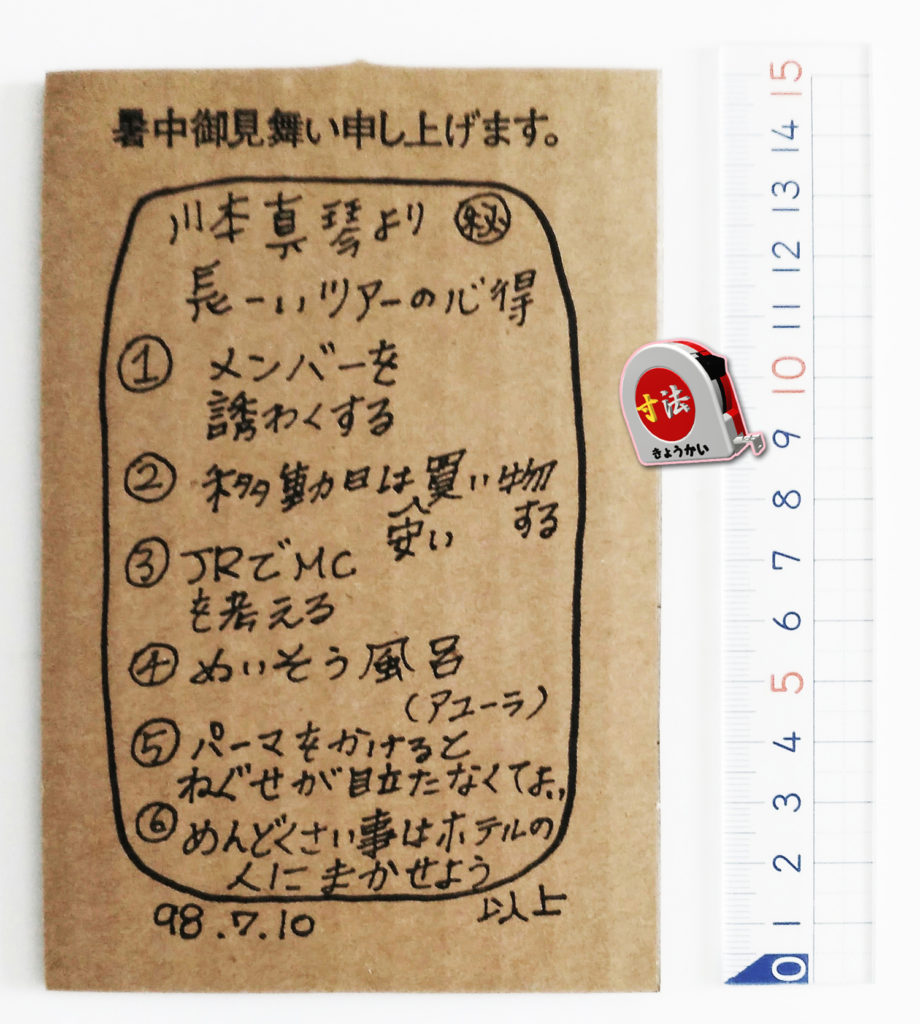 暑中御見舞い申し上げます。
川本真琴より ㊙
長ーいツアーの心得
① メンバーを
誘わくする
② 移動日は買い物
安い する
③ JRでMC
を考える
④ めいそう風呂
(アユーラ)
⑤ パーマをかけると
ねぐせが目立たなくてよい
⑥ めんどくさい事はホテルの
人にまかせよう
98.7.10 以上
寸法
きょうかい
15
14
13
12
11
10
9
8
7
6
5
4
3
2
1
0